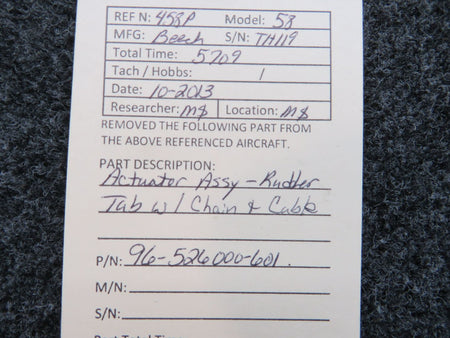 REF N: 458P Model: 58
MFG: Beech S/N: TH119
Total Time: 5709
Tach / Hobbs: /
Date: 10-2013
Researcher: M$ Location: M$
REMOVED THE FOLLOWING PART FROM
THE ABOVE REFERENCED AIRCRAFT.
PART DESCRIPTION:
Actuator Assy - Rudder
Tab w/ Chain & Cable
P/N: 96-526000-601.
M/N:
S/N: